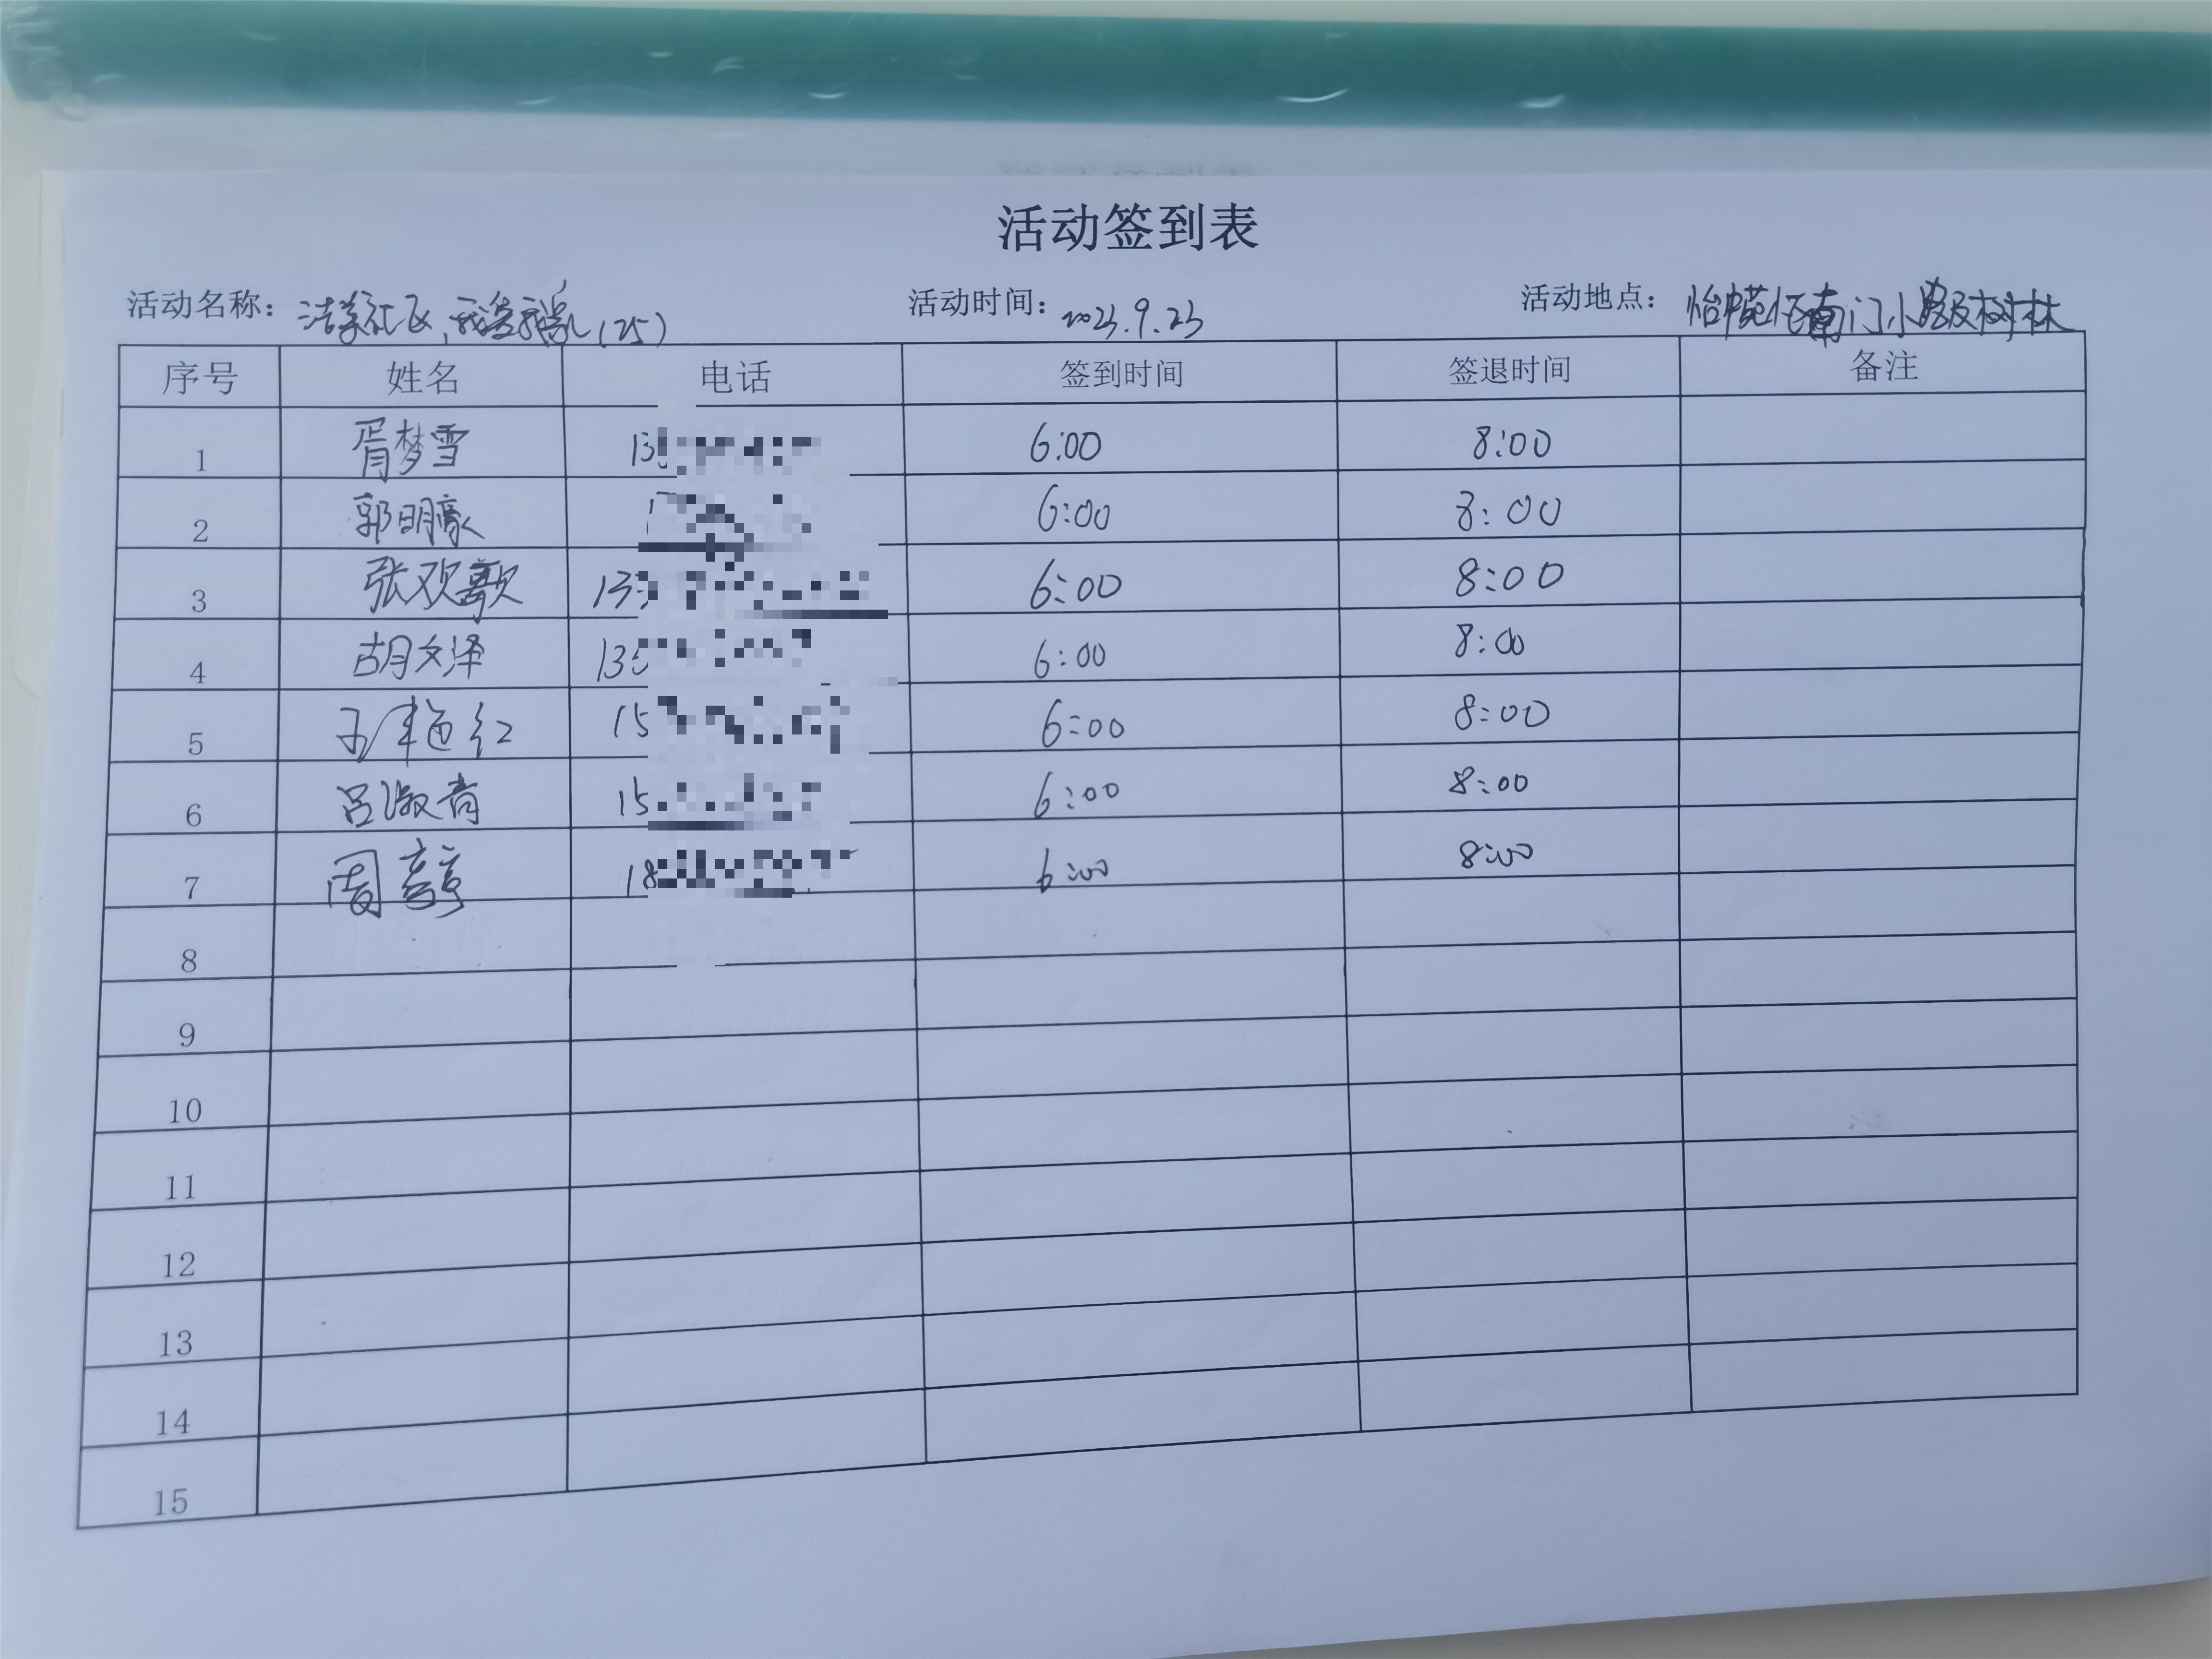 活动签到表
活动名称： 洁美社区, (25) 活动时间： 2023.9.23 活动地点： 南门小路及树林
序号 姓名 电话 签到时间 签退时间 备注
1 胥梦雪 13 6:00 8:00
2 郭明豪 6:00 8:00
3 张欢歌 13 6:00 8:00
4 胡文泽 13 6:00 8:00
5 艳红 15 6:00 8:00
6 吕淑青 15 6:00 8:00
7 周 18 6:00 8:00
8
9
10
11
12
13
14
15